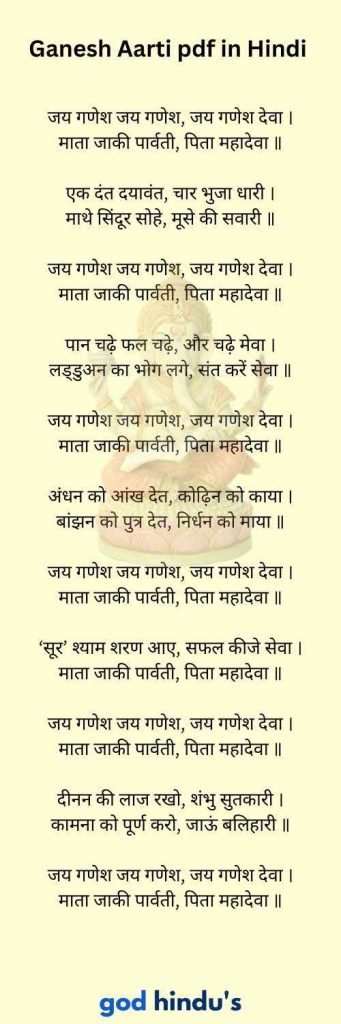 Ganesh Aarti pdf in Hindi
जय गणेश जय गणेश, जय गणेश देवा ।
माता जाकी पार्वती, पिता महादेवा ॥
एक दंत दयावंत, चार भुजा धारी ।
माथे सिंदूर सोहे, मूसे की सवारी ॥
जय गणेश जय गणेश, जय गणेश देवा ।
माता जाकी पार्वती, पिता महादेवा ॥
पान चढ़े फल चढ़े, और चढ़े मेवा ।
लड्डुअन का भोग लगे, संत करें सेवा ॥
जय गणेश जय गणेश, जय गणेश देवा ।
माता जाकी पार्वती, पिता महादेवा ॥
अंधन को आंख देत, कोढ़िन को काया ।
बांझन को पुत्र देत, निर्धन को माया ॥
जय गणेश जय गणेश, जय गणेश देवा ।
माता जाकी पार्वती, पिता महादेवा ॥
‘सूर’ श्याम शरण आए, सफल कीजे सेवा ।
माता जाकी पार्वती, पिता महादेवा ॥
जय गणेश जय गणेश, जय गणेश देवा ।
माता जाकी पार्वती, पिता महादेवा ॥
दीनन की लाज रखो, शंभु सुतकारी ।
कामना को पूर्ण करो, जाऊं बलिहारी ॥
जय गणेश जय गणेश, जय गणेश देवा ।
माता जाकी पार्वती, पिता महादेवा ॥
god hindu's